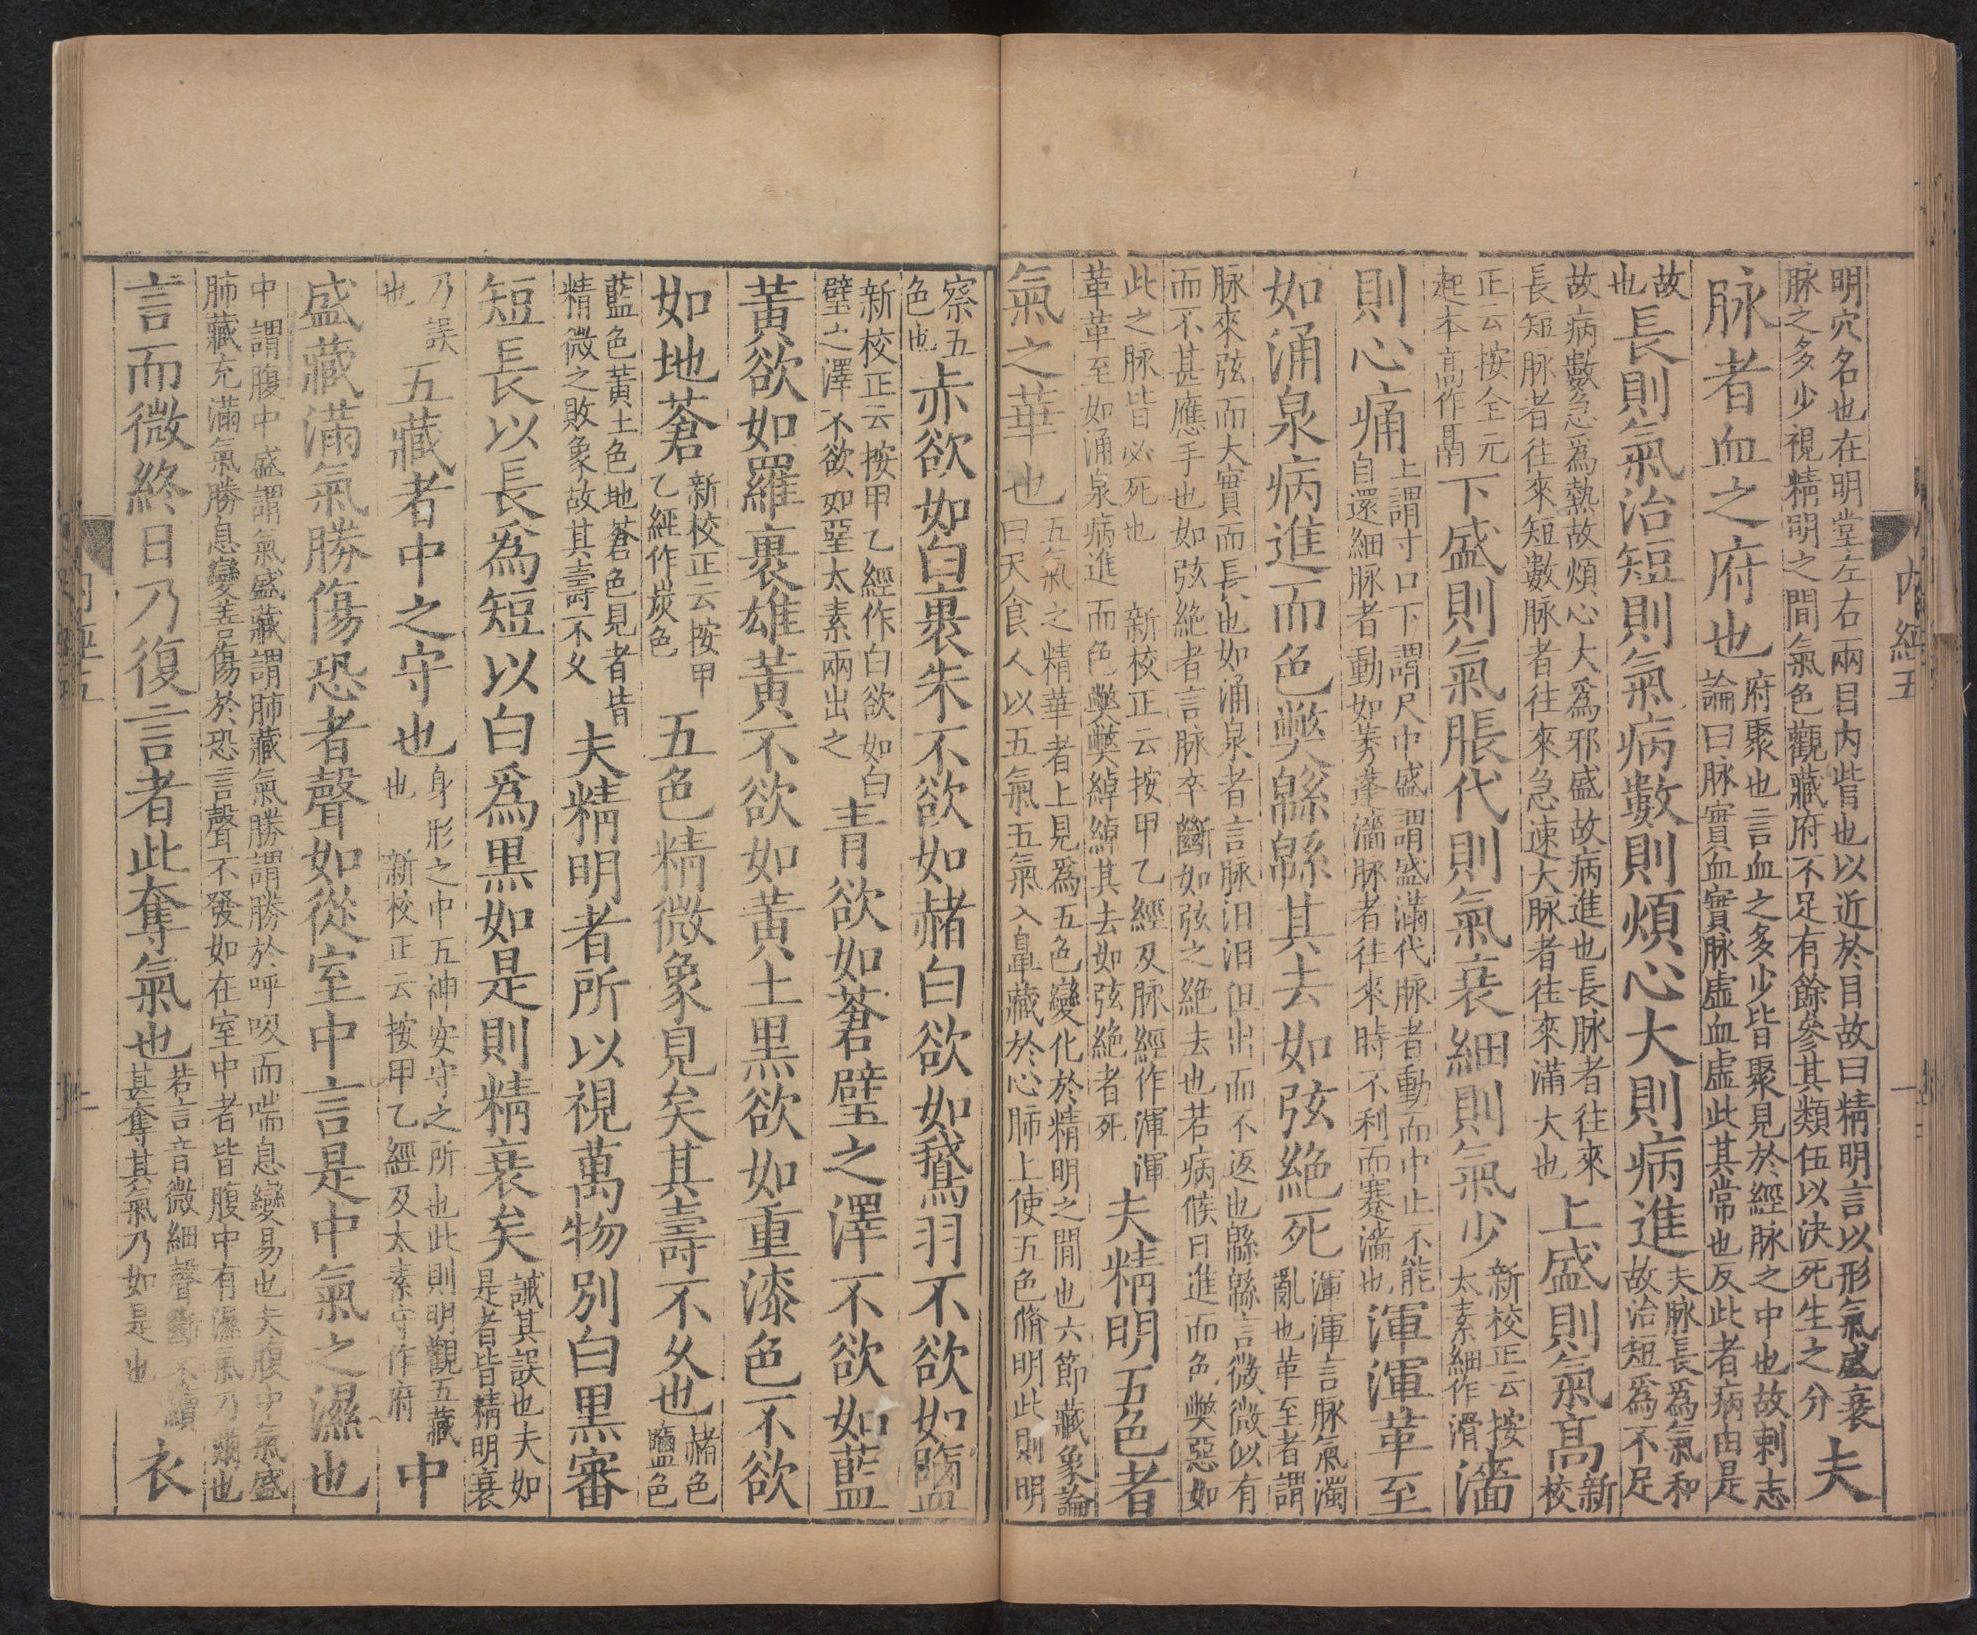 內經五
一
明穴名也在明堂左右兩目內眥也以近於目故曰精明言以形氣盛衰
脉之多少視精明之間氣色觀藏府不足有餘參其類伍以決死生之分 夫
脉者血之府也 府聚也言血之多少皆聚見於經脉之中也故刺志
論曰脉實血實脉虛血虛此其常也反此者病由是
故
也 長則氣治短則氣病數則煩心大則病進 夫脉長爲氣和
故治短爲不足
故病數急爲熱故煩心大爲邪盛故病進也長脉者往來
長短脉者往來短數脉者往來急速大脉者往來滿大也 上盛則氣髙 新
校
正云按全元
起本髙作鬲 下盛則氣脹代則氣衰細則氣少 新校正云按
太素細作滑 濇
則心痛 上謂寸口下謂尺中盛謂盛滿代脉者動而中止不能
自還細脉者動如莠蓬濇脉者往來時不利而蹇濇也 渾渾革至
如涌泉病進而色弊緜緜其去如弦絶死 渾渾言脉氣濁
亂也革至者謂
脉來弦而大實而長也如涌泉者言脉汩汩但出而不返也緜緜言微微似有
而不甚應手也如弦絶者言脉卒斷如弦之絶去也若病候日進而色弊惡如
此之脉皆必死也 新校正云按甲乙經及脉經作渾渾
革革至如涌泉病進而色弊弊綽綽其去如弦絶者死 夫精明五色者
氣之華也 五氣之精華者上見爲五色變化於精明之間也六節藏象論
曰天食人以五氣五氣入鼻藏於心肺上使五色脩明此則明
察五
色也 赤欲如白裹朱不欲如赭白欲如鵝羽不欲如鹽
新校正云按甲乙經作白欲如白
璧之澤不欲如堊太素兩出之 青欲如蒼璧之澤不欲如藍
黃欲如羅裹雄黃不欲如黃土黑欲如重漆色不欲
如地蒼 新校正云按甲
乙經作炭色 五色精微象見矣其壽不久也 赭色
鹽色
藍色黃土色地蒼色見者皆
精微之敗象故其壽不久 夫精明者所以視萬物別白黑審
短長以長爲短以白爲黑如是則精衰矣 誡其誤也夫如
是者皆精明衰
乃誤
也 五藏者中之守也 身形之中五神安守之所也此則明觀五藏
也 新校正云按甲乙經及太素守作府 中
盛藏滿氣勝傷恐者聲如從室中言是中氣之濕也
中謂腹中盛謂氣盛藏謂肺藏氣勝謂勝於呼吸而喘息變易也夫腹中氣盛
肺藏充滿氣勝息變善傷於恐言聲不發如在室中者皆腹中有濕氣乃爾也
言而微終日乃復言者此奪氣也 若言音微細聲斷不續
甚奪其氣乃如是也 衣